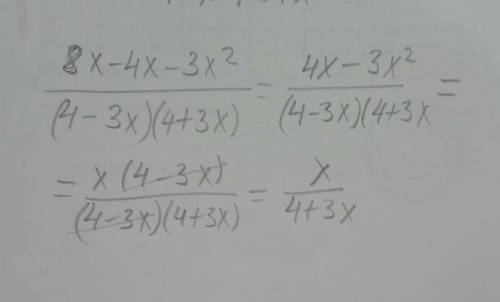 (8x-4x-3x²)/((4-3x)(4+3x)) = (4x-3x²)/((4-3x)(4+3x) =
= (x(4-3x))/((4-3x)(4+3x)) = x/(4+3x)